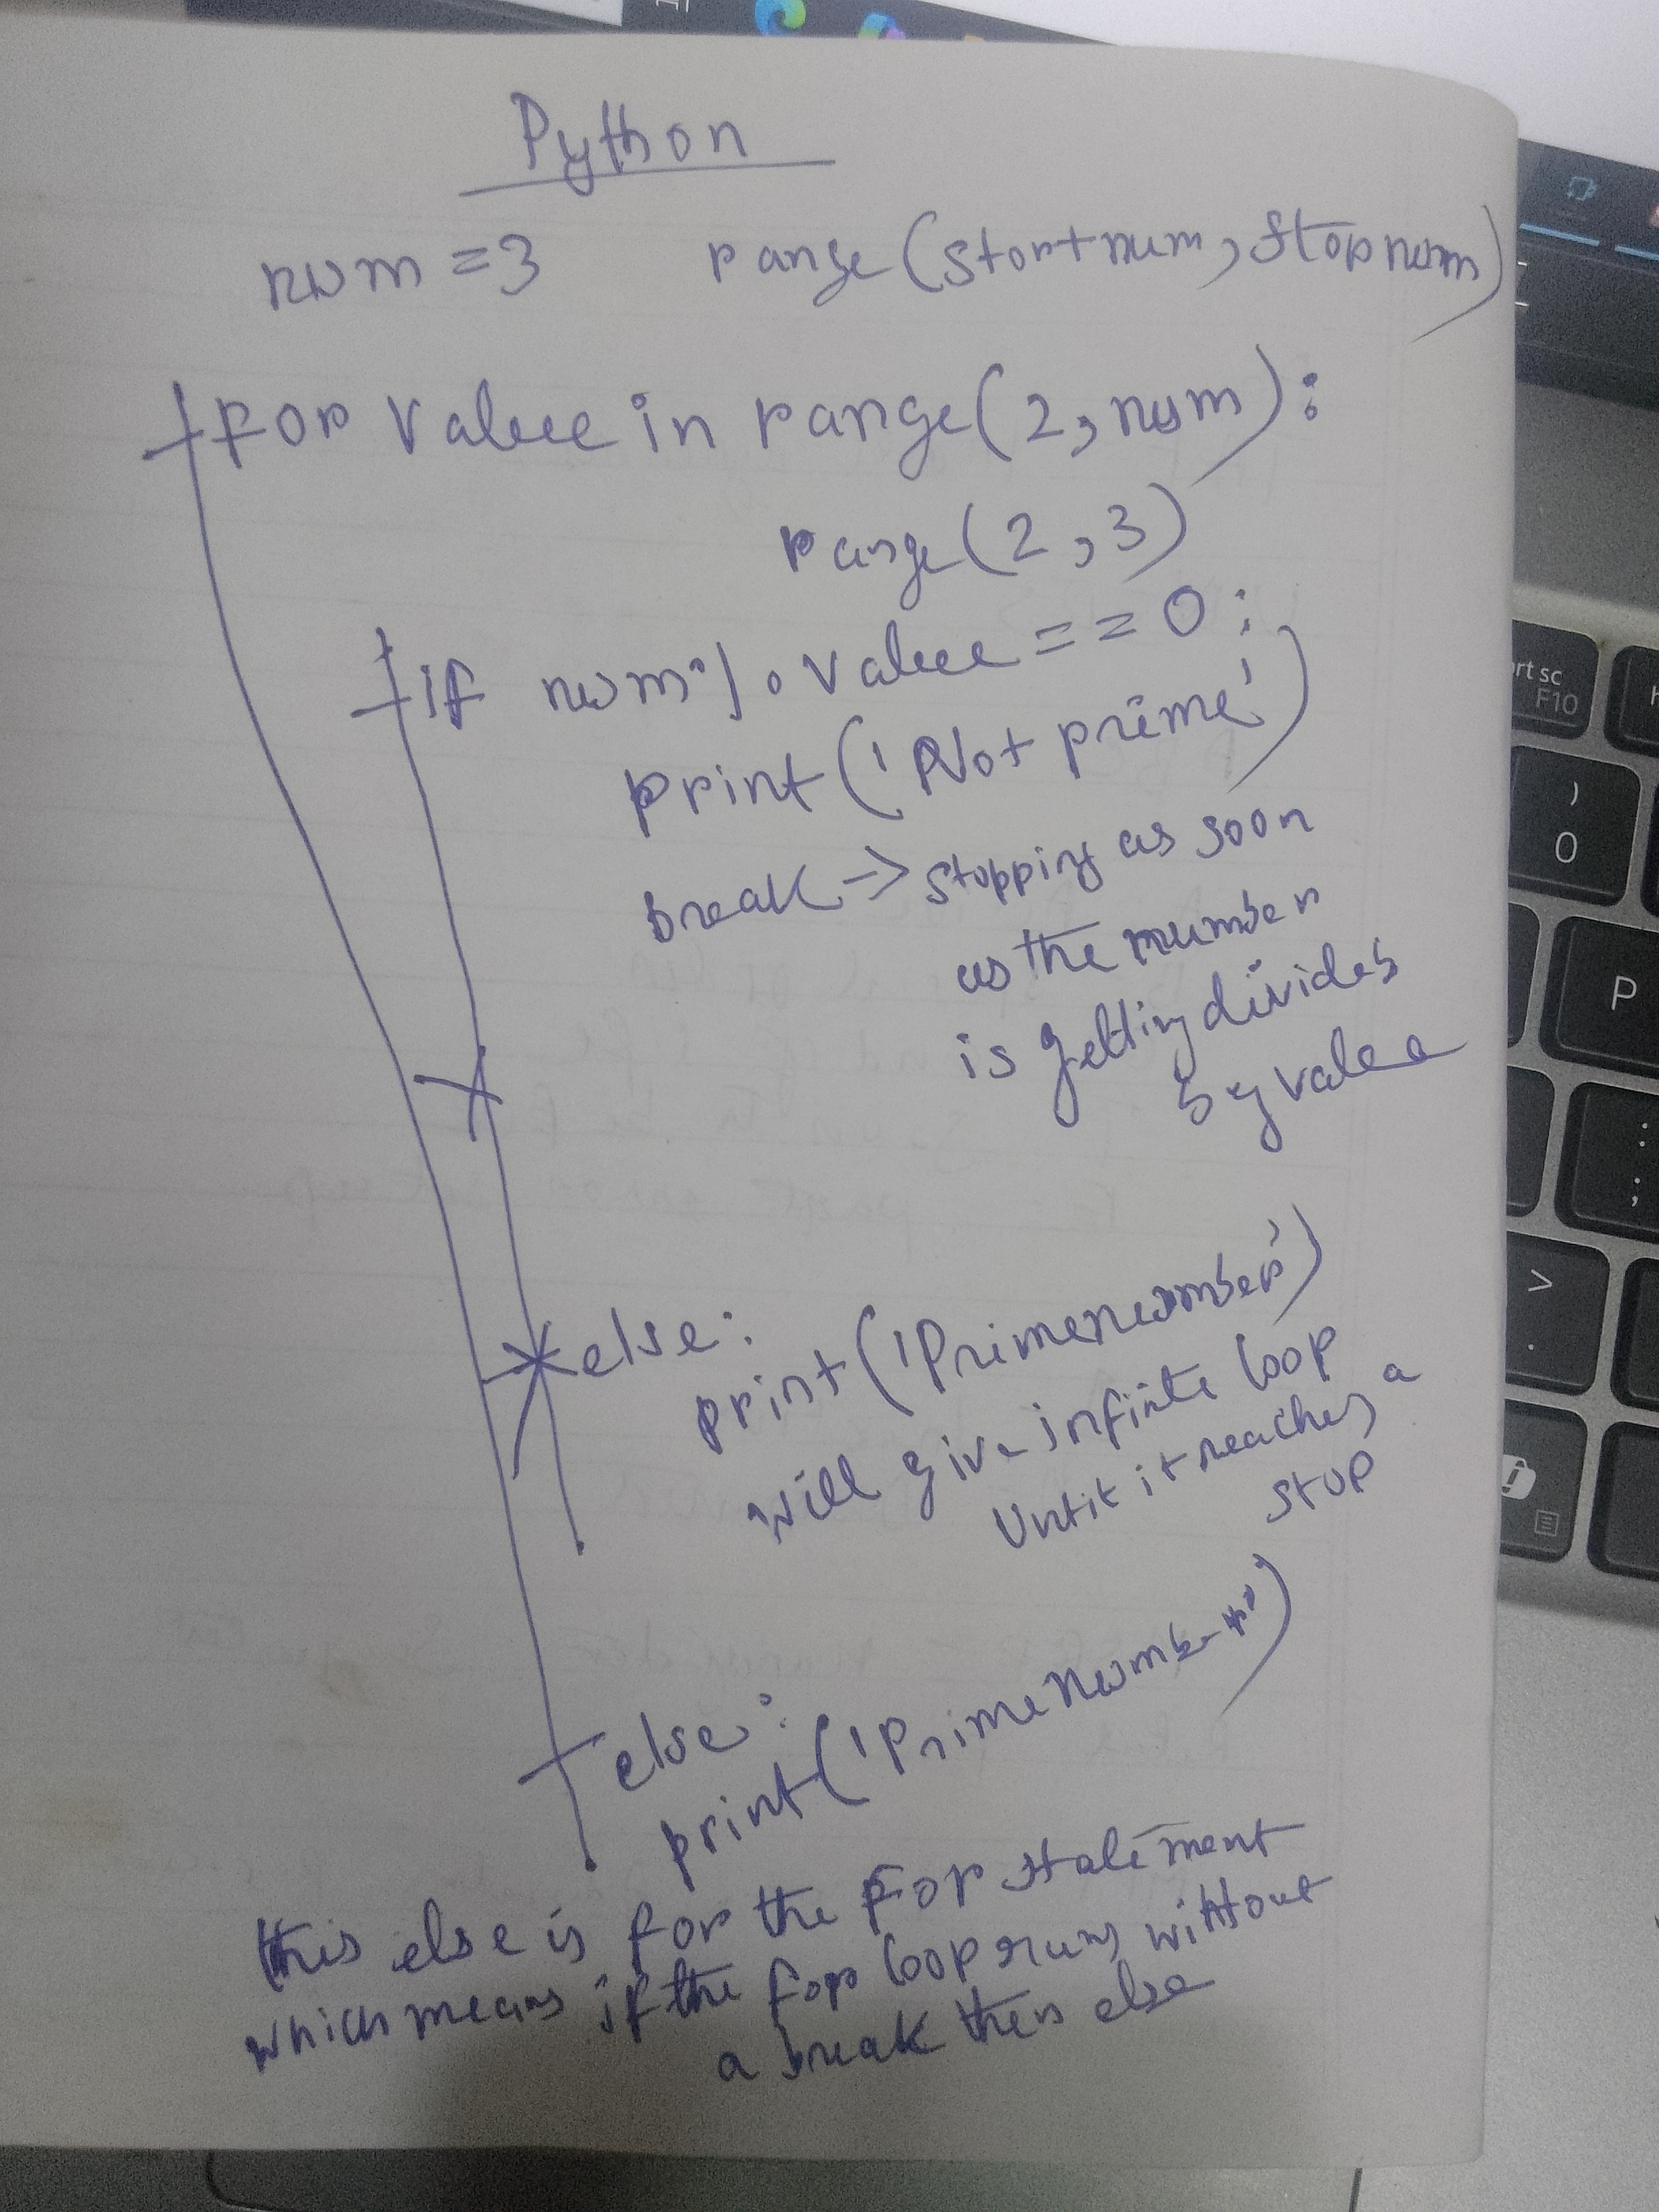 Python
num = 3 range(startnum, stopnum)
for value in range(2, num):
range(2, 3)
if num % value == 0:
print('Not prime')
break → stopping as soon
as the number
is getting divides
by value
else:
print('Primenumber')
will give infinite loop
Until it reaches a
stop
else:
print('Prime Number')
this else is for the for statement
which means if the for loop runs without
a break this else
rt sc
F10
)
0
P
:
;
>
.